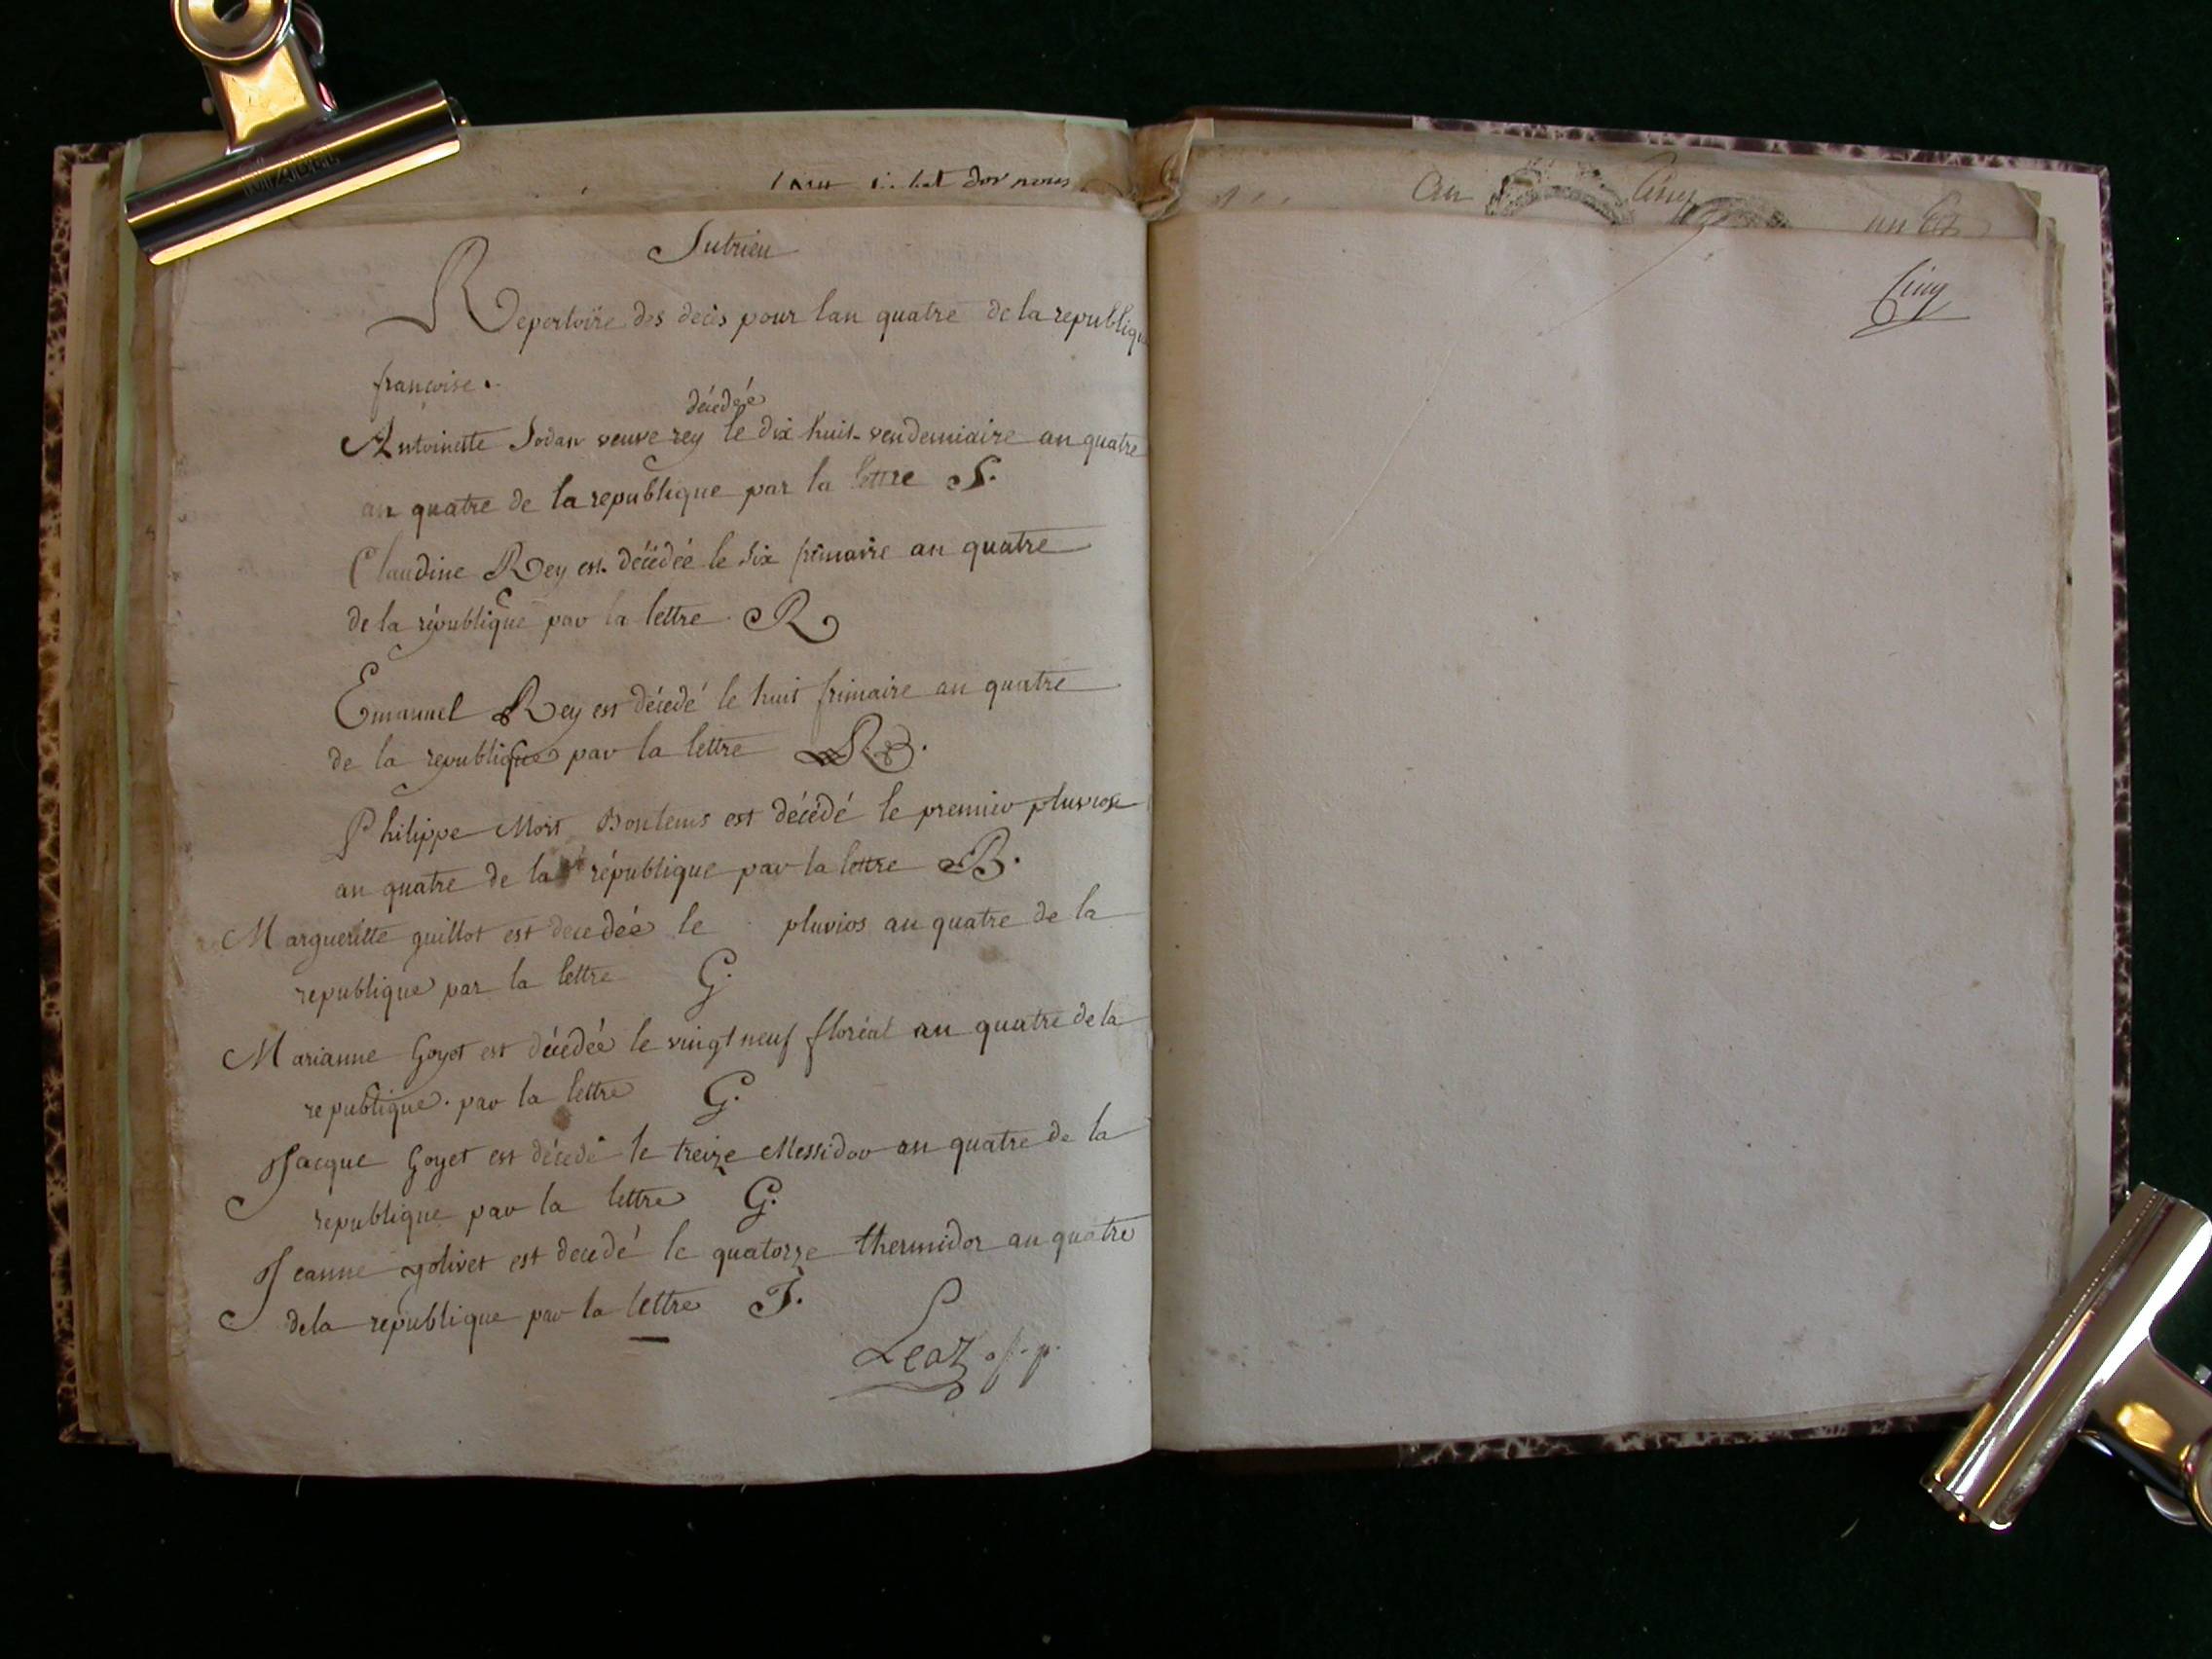 Sutrieu
Repertoire des decès pour lan quatre de la republique
francoise.
décédée
Antoinette Sodan veuve rey le dix huit vendemiaire an quatre
an quatre de la republique par la lettre S.
Claudine Rey est décédée le six frimaire an quatre
de la république par la lettre R
Emanuel Rey est décédé le huit frimaire an quatre
de la republique par la lettre R.
Philippe Mort Bontems est décédé le premier pluviose
an quatre de la république par la lettre B.
Margueritte guillot est decedée le pluvios an quatre de la
republique par la lettre G.
Marianne Goyet est décédée le vingt neuf floréal an quatre de la
republique. par la lettre G.
Jacque Goyet est décédé le treize Messidor an quatre de la
republique par la lettre G.
Jeanne golivet est decedé le quatorze thermidor an quatre
dela republique par la lettre J.
Leaz of. p.
an Cinq
Cinq